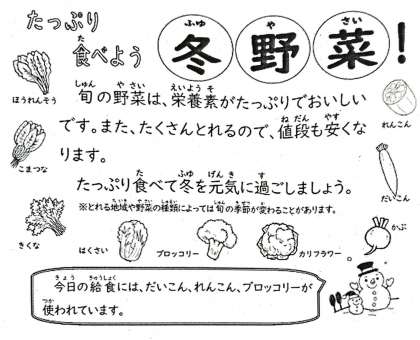 たっぷり
食べよう
冬野菜！
ほうれんそう
こまつな
きくな
旬の野菜は、栄養素がたっぷりでおいしい
です。また、たくさんとれるので、値段も安くな
ります。
たっぷり食べて冬を元気に過ごしましょう。
※とれる地域や野菜の種類によっては旬の季節が変わることがあります。
れんこん
だいこん
かぶ
はくさい
ブロッコリー
カリフラワー
今日の給食には、だいこん、れんこん、ブロッコリーが
使われています。